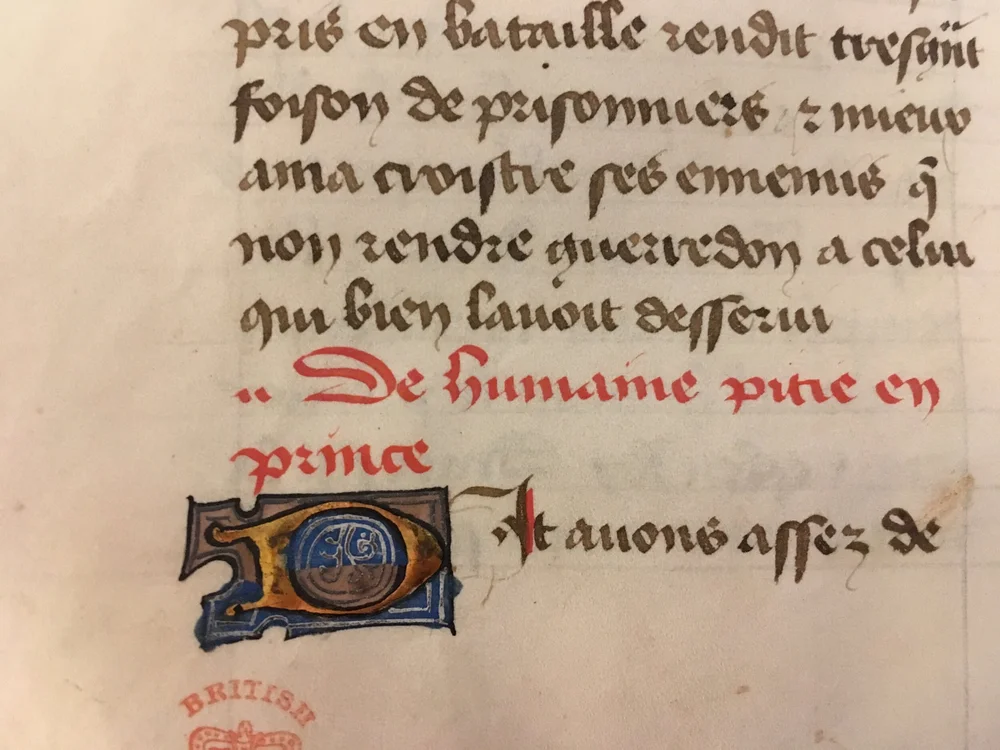 pris en bataille rendit tresgñt
foison de prisonniers ⁊ mieux
ama croistre ses ennemis q̃
non rendre guerredon a celui
qui bien lauoit desserui
.. De humaine pitie en
prince
DIt auons assez de
BRITISH